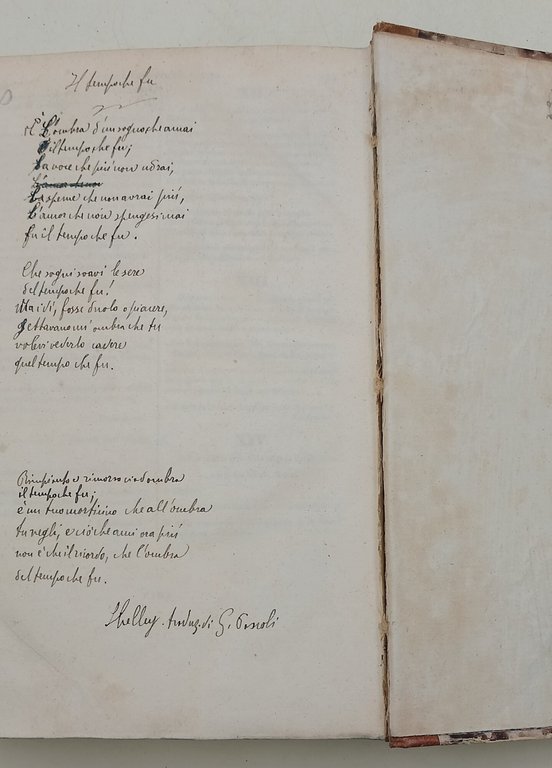 Il tempo che fu
È l'ombra d'un sogno che amai
il tempo che fu;
La voce che più non udrai,
La speme che non avrai più,
L'amor che non spengesi mai
fu il tempo che fu.
Che sogni soavi le sere
del tempo che fu!
Ma i dì, fosse duolo o piacere,
gettavano un'ombra che tu
volevi vederlo cadere
quel tempo che fu.
Rimpianto e rimorso ci adombra
il tempo che fu;
è un tuo morticino che all'ombra
tu vegli, e ciò che ami ora più
non è che il ricordo, che l'ombra
del tempo che fu.
Shelley. traduz. di G.